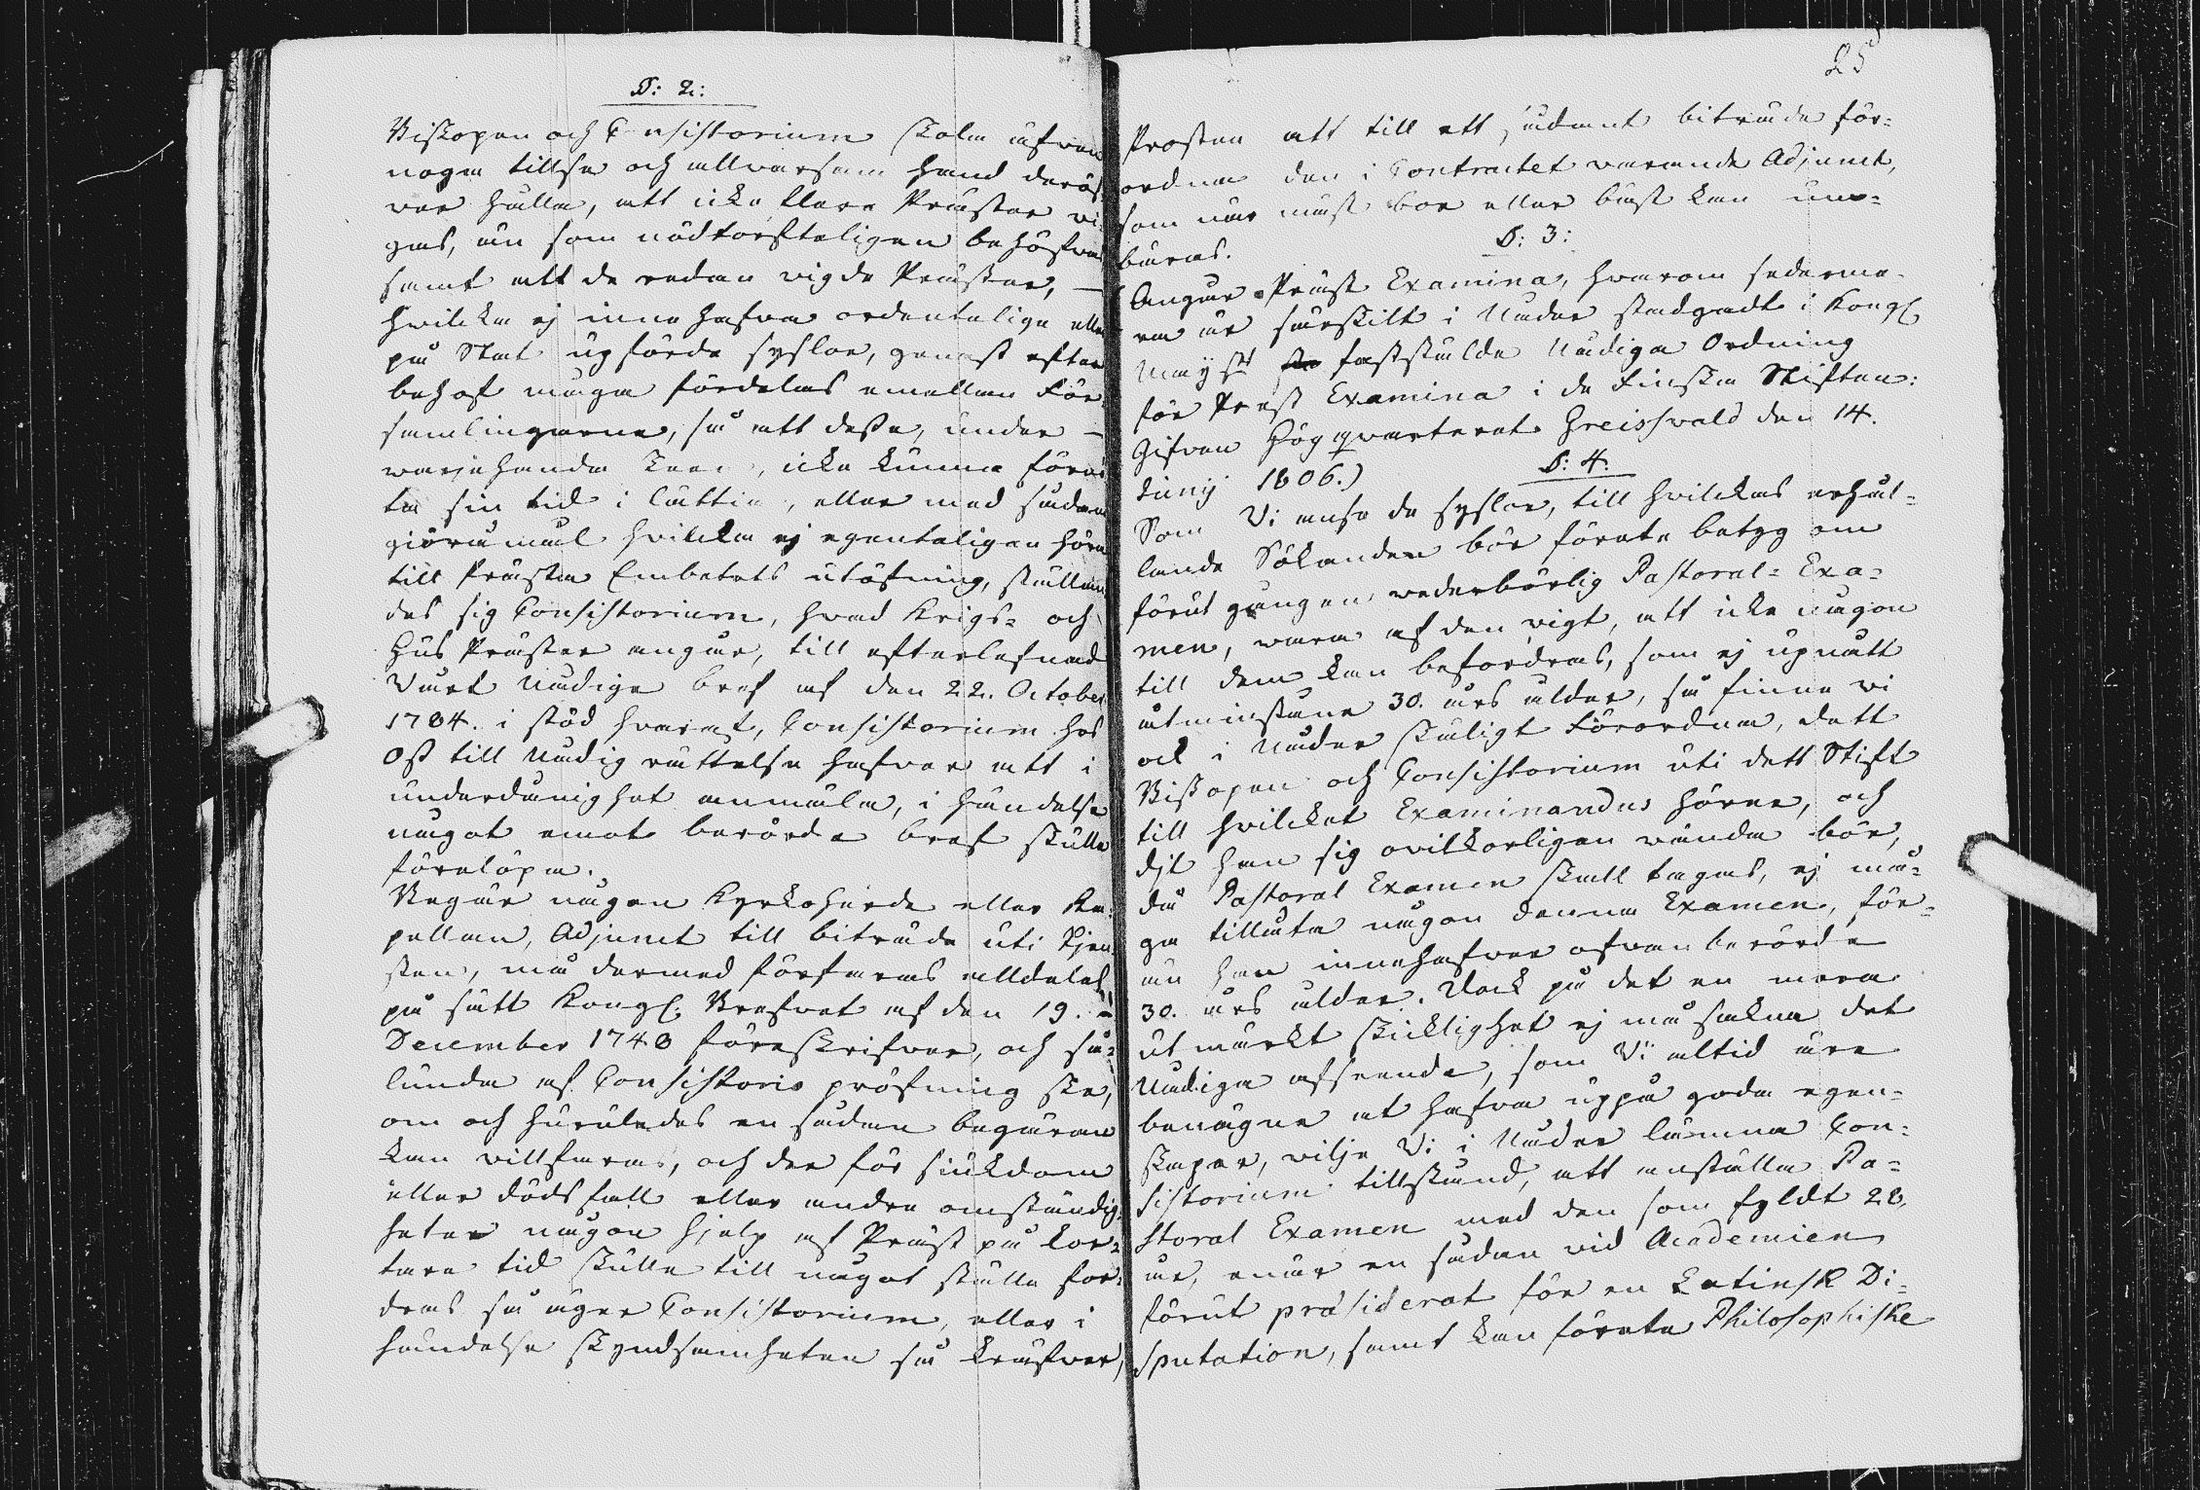 §: 2:
Biskopen och Consistorium skola äfven
noga tillse och allvarsam hand deröf
ver hålla, att icke flera Präster vi
gas, än som nödtorfteligen behöfvas
samt att de redan vigde Präster, —
hvilcka ej inne hafva ordentelige eller
på Stat upförde syslor, genast efter
behof måga fördelas emellan För-
samlingarna, så att desse, under —
warjehanda, icke kunna förnö
ta sin tid i lättia, eller med sådana
giöromål hvilcka ej egenteligen höra
till Prästa Embetets utöfning, ställan
des sig Consistorium, hvad Krigs- och
Hus Präster angår, till efterlefnad
Vårt Nådiga bref af den 22. October
1784. i stöd hvaraf, Consistorium hos
Oss till Nådig rättelse hafver att i
underdånighet anmäla, i händelse
något emot berörde bref skulle
förelöpa.
Begär någon Kyrkoherde eller Ka-
pellan, Adjunct till biträde uti tjen
sten, må dermed förfaras alldeles
på sätt Kongl. Brefvet af den 19.
December 1748 föreskrifver, och så-
lunda af Consistorio pröfning ske,
om och huruledes en sådan begäran
kan villfaras, och der för siukdom
eller dödsfall eller andra omständig-
heter någon hjelp af Präst på kor-
tare tid skulle till något ställe for-
dras så äger Consistorium, eller i
händelse skyndsamheten så kräfver,
25
Prosten att till ett sådant biträde för-
ordna den i Contractet warande Adjunct,
som när mast bor eller bäst kan um-
bäras.
§: 3:
Angår Präst Examina, hvarom sederme-
ra är särskilt i Nåder stadgadt i Kongl
Maijsts faststälde Nådiga Ordning
för Prest Examina i de Finska Stiften:
Gifven Högqvarteret Greifsvald den 14.
Junij 1806.)
§: 4.
Som Vi anse de syslor, till hvilckas erhål-
lande Sökanden bör förete betyg om
förut gången wederbörlig Pastoral- Exa-
men, wara af den vigt, att icke någon
till dem kan befordras, som ej upnått
åtminstone 30. års ålder, så finne vi
ock i Nåder skäligt Förordna, dett
Biskopen och Consistorium uti dett Stift
till hvilcket Examinandus hörer, och
dit han sig ovilkorligen wända bör,
då Pastoral Examen skall tagas, ej må-
ga tillåta någon denna Examen, för-
än han innehafver ofvanberörde
30. års ålder. Dock på det en mera
utmärkt skicklighet ej må sakna det
Nådiga afseende, som Vi altid äre
benägne at hafva uppå goda egen-
skaper, vilje Vi i Nåder lämna Con-
sistorium tillstånd, att anställa Pa-
storal Examen med den som fyldt 28,
år, enär en sådan vid Academien
förut præsiderat för en Latinsk Di-
sputation, samt kan förete Philosophiske